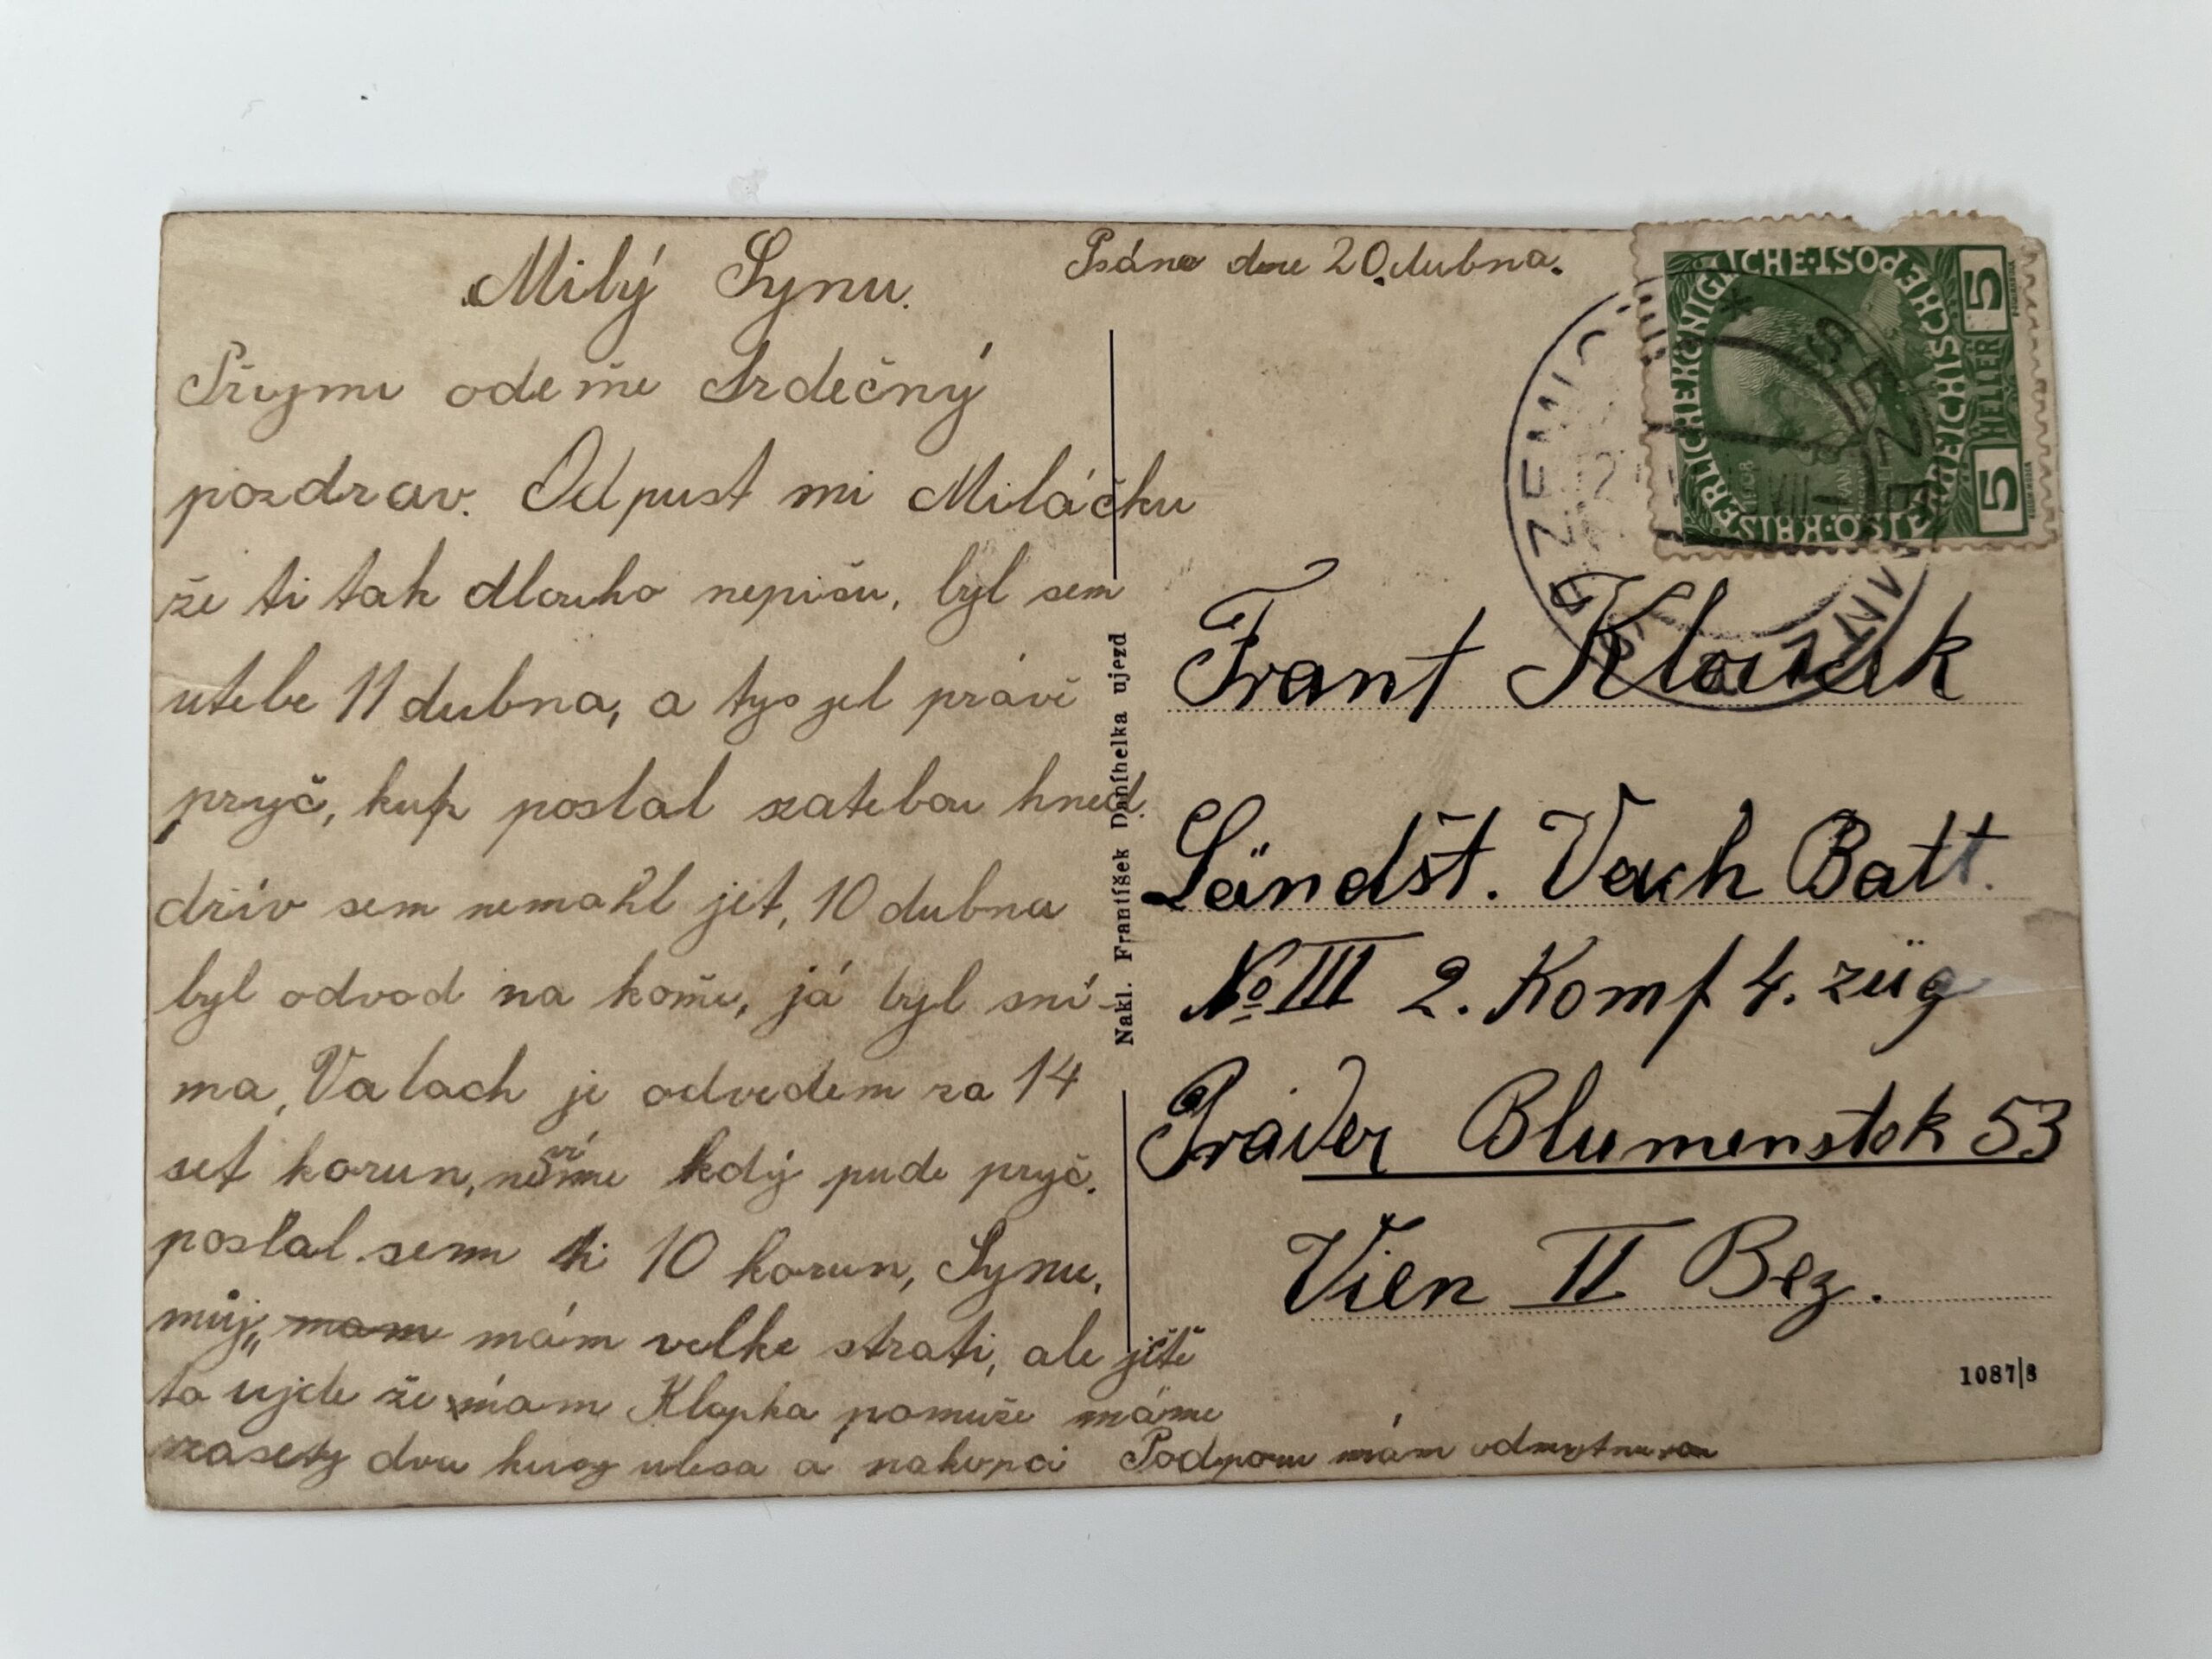 Psáno dne 20. dubna.
Milý Synu.
Přijmi odemně Srdečný
pozdrav. Odpust mi Miláčku
že ti tak dlouho nepišu, byl sem
utebe 11 dubna, a tys jel právě
pryč, kufr poslal zatebou hned.
dřív sem nemohl jet, 10 dubna
byl odvod na koně, já byl sní-
ma, Valach je odveden za 14
set korun, nevíme kdy pude pryč.
poslal sem ti 10 korun, Synu,
můj, mam mám velke strati, ale ještě
to ujde že nám Klapka pomuže máme
zasety dva kusy ulesa a nakopci Podporu mám
Frant Kloucek
Ländšt. Vach Batt.
No III 2. Komp 4. züg
Prader Blumenstok 53
Vien II Bez.
Nakl. František Daníhelka ujezd
1087/8
KAISERLICHE KÖNIGLICHE ÖSTERREICHISCHE POST
5 HELLER 5
1908